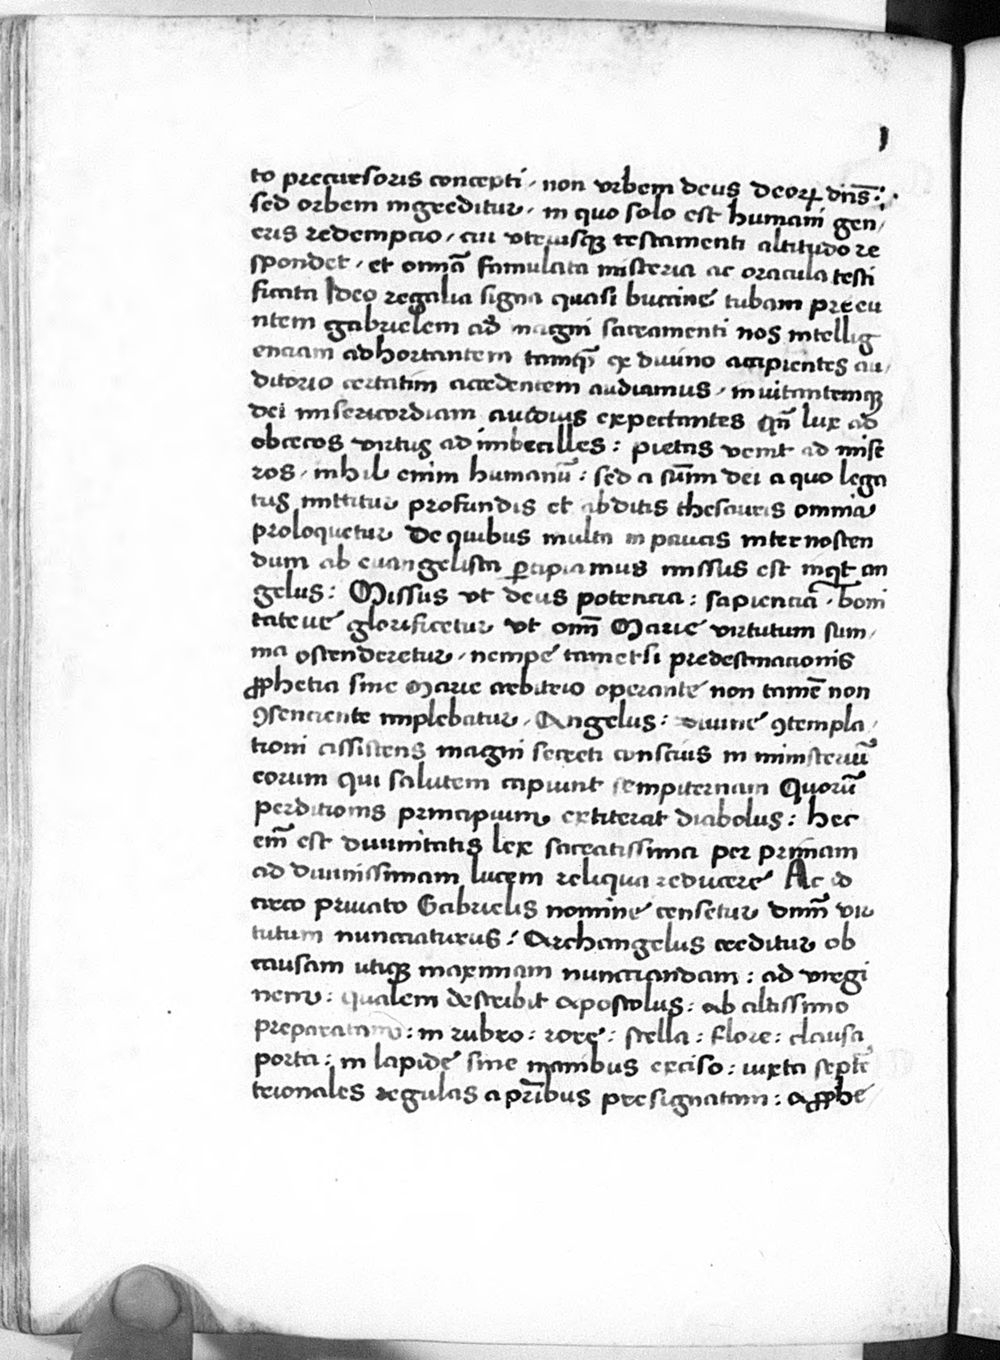 to precursoris concepti, non vrbem deus deoꝝ dn̄s:
sed orbem ingreditur, in quo solo est humani gen,
eris redempcio, cui vtriusqꝫ testamenti altitudo re
spondet, et om̄ia famulata misteria ac oracula testi
ficata Ideo regalia signa quasi buccine tubam precu
ntem gabrielem ad magni sacramenti nos intellig
enciam adhortantem tamqͣ ex diuino accipientes au,
ditorio certatim accedentem audiamus, inuitantemqꝫ
dei misericordiam auidius expectantes Qn̄ lux ad
obcecos virtus ad imbecilles: pietas venit ad mise
ros, nihil enim humanū: sed a sūmi dei a quo lega
tus mittitur profundis et abditis thesauris omnia
proloquetur De quibus multa in paucis inter nosten
dum ab euangelista ꝑcipiamus missus est inqͥt an
gelus: Missus vt deus potencia: sapiencia, boni
tateue glorificetur vt om̄i Marie virtutum sum,
ma ostenderetur, nempe tametsi predestinacionis
ꝓphetia sine Marie arbitrio operante non tamē non
ꝯsenciente implebatur, Angelus: diuine ꝯtempla,
tioni assistens magni secreti conscius in ministeriū
eorum qui salutem capiunt sempiternam Quorū
perditionis principium extiterat diabolus: hec
em̄ est diuinitatis lex sacratissima per primam
ad diuinissimam lucem reliqua reducere Ac id
circo priuato Gabrielis nomine censetur dn̄m vir
tutum nunciaturus: Archangelus creditur ob
causam utiqꝫ maximam nunciandam: ad virgi
nem: qualem describit apostolus: ab altissimo
preparatam: in rubro: rore: stella: flore: clausa,
porta: in lapide sine manibus exciso: iuxta septē
trionales regulas a pr̄ibus presignatam: a ꝓphe